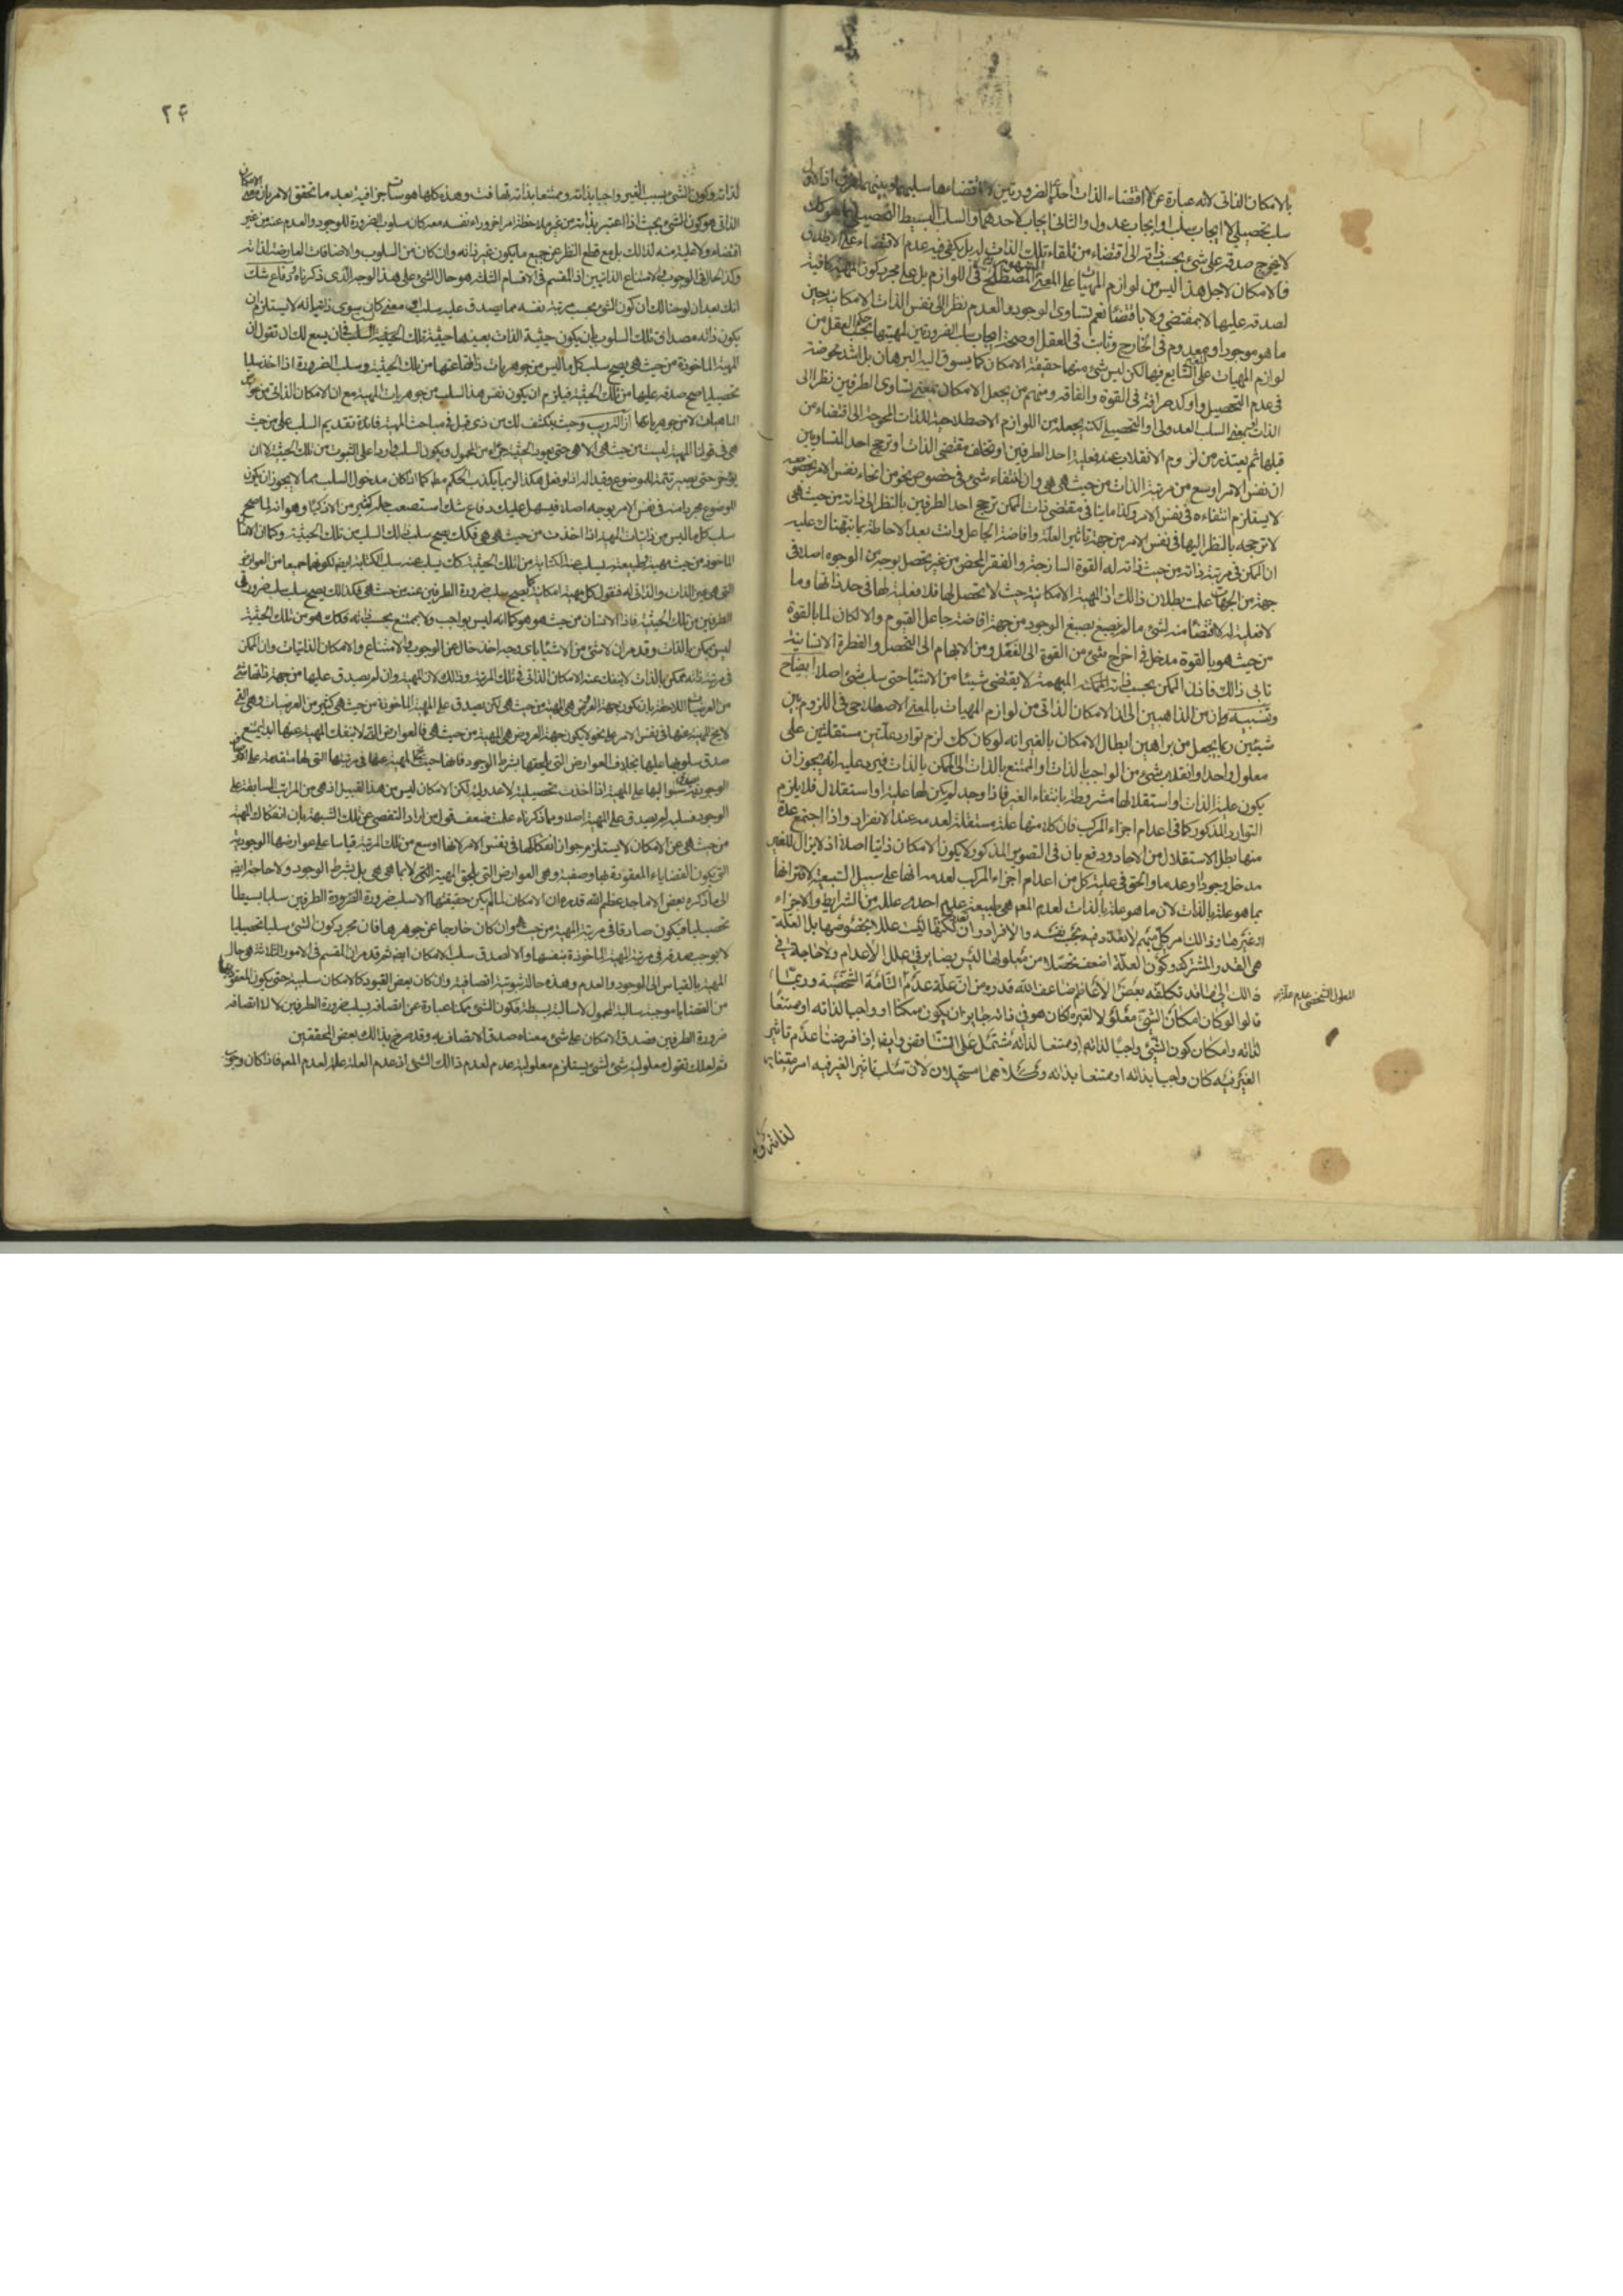 بالامكان الذاتى لانه عبارة عن لا اقتضاء الذات احد الضرورتين لا اقتضاءها سلبهما وبينهما فرق اذ الاول
سلب تحصيلى لا ايجاب سلب او ايجاب عدول والثانى ايجاب لاحدهما والسلب البسيط التحصيلى بما هو كك
لا يحوج صدقه على شئ بحسب ذاته الى اقتضاء من تلقاء تلك الذات له بل يكفى فيه عدم الاقتضاء على الاطلاق
فالامكان لاجل هذا ليس من لوازم المهيات على المعنى المصطلح المشهور فى اللوازم بل على مجرد كون المهية كافية
لصدقه عليها لا بمقتضى ولا باقتضاء نعم تساوى الوجود والعدم نظرا الى نفس الذات الامكانية حين
ما هو موجود او معدوم فى الخارج وثابت فى العقل او صحة ايجاب سلب الضرورتين لمهيتها بحسب حكم العقل من
لوازم المهيات على المعنى الشايع فيها لكن ليس شئ منها حقيقة الامكان كما يسوق اليه البرهان بل اشد محوضة
فى عدم التحصيل واوكد صرافة فى القوة والفاقه ومنهم من يجعل الامكان بمعنى تساوى الطرفين نظرا الى
الذات او بمعنى السلب العدولى او التحصيلى لكنه يجعله من اللوازم الاصطلاحية للذات المحوجة الى اقتضاء من
قبلها ثم يعتذر من لزوم الانقلاب عند فعلية احد الطرفين او تخلف مقتضى الذات او ترجح احد المتساويين
ان نفس الامر اوسع من مرتبة الذات من حيث هى هى وان انتفاء شئ فى خصوص نحو من انحاء نفس الامر بخصوصه
لا يستلزم انتفاءه فى نفس الامر وكذا ما ينافى مقتضى ذات الممكن ترجح احد الطرفين بالنظر الى ذاته من حيث هى
لا ترجحه بالنظر اليها فى نفس الامر من جهة تاثير العلة وافاضة الجاعل وانت بعد الاحاطة بما نبهناك عليه
ان الممكن فى مرتبة ذاته من حيث ذاته له القوة الساذجة والفقر المحض من غير تحصل بوجه من الوجوه اصلا فى
جهة من الجهات علمت بطلان ذالك اذ المهية الامكانية حيث لا تحصل لها فلا فعلية لها فى حد ذاتها وما
لا فعلية له لا اقتضاء منه لشئ ما لم يصبغ بصبغ الوجود من جهة افاضة جاعل القيوم والا لكان لما بالقوة
من حيث هو بالقوة مدخل فى اخراج شئ من القوة الى الفعل ومن الابهام الى التحصل والفطرة الانسانية
تابى ذالك فاذن الممكن بحسب ذاته الممكنة المبهمة لا يقتضى شيئا من الاشياء حتى سلب شئ اصلا ايضاح
وتنبيه وان من الذاهبين الى ان الامكان الذاتى من لوازم المهيات بالمعنى الاصطلاحى فى اللزوم بين
شيئين ربما يجعل من براهين ابطال الامكان بالغير انه لو كان كك لزم توارد علتين مستقلتين على
معلول واحد او انقلاب شئ من الواجب بالذات او الممتنع بالذات الى الممكن بالذات فيرد عليه انه يجوز ان
يكون علية الذات او استقلالها مشروطة بانتفاء الغير فاذا وجد لم يكن لها علية او استقلال فلا يلزم
التوارد المذكور كما فى اعدام اجزاء المركب فان كلا منها علة مستقلة لعدمه عند الانفراد واذا اجتمع عدة
منها بطل الاستقلال من الاحاد ودفع بان فى التصوير المذكور لا يكون الامكان ذاتيا اصلا اذ لا يزال للغير
مدخل وجودا وعدما والحق فى علية كل من اعدام اجزاء المركب لعدمه انها على سبيل التبعية لاقترانها
بما هو علة بالذات لان ما هو علة بالذات لعدم المعلول هى طبيعة عدم احدى علله من الشرايط والاجزاء
او غيرها وذالك امر كلى مبهم لا تعدد فيه بحسب نفسه والافراد وان تعددت لكنها ليست عللا بخصوصها بل العلة
هى القدر المشترك وكون العلة اضعف تحصلا من معلولها ليس بضاير فى علل الاعدام ولا حاجة فى
ذالك الى ما قد تكلفه بعض الاعاظم ضاعف الله قدره من ان علة عدم التامة الشخصية وربما
قالوا لو كان امكان الشئ معلولا لغيره لكان هو فى ذاته جايز ان يكون ممكنا او واجبا لذاته او ممتنعا
لذاته وامكان كون الشئ واجبا لذاته او ممتنعا لذاته مشتمل على التناقض وايضا اذا فرضنا عدم تاثير
الغير فيه كان واجبا بذاته او ممتنعا بذاته وكلاهما مستحيلان لان سلب تاثير الغير فيه امر مقيس
المعلول الشخصى عدم علته
لذاته وكون
٢۴
لذاته وكون الشئ بسبب الغير واجبا بذاته وممتنعا بذاته تهافت وهذه كلها هوسات جزافية بعد ما تحقق الامر بان معنى الامكان
الذاتى هو كون الشئ بحيث اذا اعتبر بذاته من غير ملاحظة امر اخر وراء نفسه معه كان مسلوب الضرورة للوجود والعدم عنه من غير
اقتضاء وعلية منه لذالك بل مع قطع النظر عن جميع ما يكون غير ذاته وان كان من السلوب والاضافات العارضة لذاته
وكذا الحال فى الوجوب والامتناع الذاتيين اذ المقسم فى الاقسام الثلث هو حال الشئ على هذا الوجه الذى ذكرناه دفاع شك
انك بعد ان لوحنا لك ان كون الشئ بحسب مرتبة نفسه مما يصدق عليه سلب اى معنى كان سوى ذاتياته لا يستلزم ان
يكون ذاته مصداق تلك السلوب بان يكون حيثية الذات بعينها حيثية تلك الحيثية السلب فان يسع لك ان تقول ان
المهية الماخوذة من حيث هى يصح سلب كل ما ليس من جوهريات ذاتها عنها من تلك الحيثية وسلب الضرورة اذا اخذ سلبا
تحصيليا صح صدقه عليها من تلك الحيثية فيلزم ان يكون نفس هذا السلب من جوهريات المهية مع ان الامكان الذاتى من
الماهيات لا من جوهرياتها
هى فى قولنا المهية ليست من حيث هى الا هى حتى يعود الحيثية جزء من المحمول ويكون السلب واردا على الثبوت من تلك الحيثية لا ان
يؤخر حتى يصير تتمة للموضوع وقيدا
للموضوع مجردا منه فى نفس الامر بوجه اصلا فيسهل عليك دفاع شك استصعب حله كثير من الاذكياء وهو انه لما صح
سلب كل ما ليس من ذاتيات المهية اذا اخذت من حيث هى هى فكك يصح سلب ذالك السلب من تلك الحيثية وكما ان الانسان
الماخوذ من حيث هو طبيعته يسلب عنه الكتابة من تلك الحيثية كك يسلب عنه سلب الكتابة ايضا لكونهما جميعا من العوارض
التى هى غير الذات والذاتى له فنقول كل مهية امكانية كما يصح سلب ضرورة الطرفين عنه من حيث هى فكذالك يصح سلب سلب ضرورة
الطرفين من تلك الحيثية فاذن الانسان من حيث هو هو كما انه ليس بواجب ولا بممتنع بحسب ذاته فكك هو من تلك الحيثية
ليس بممكن بالذات وقد مر ان لا شئ من الاشياء باى وجه اخذ خال عن الوجوب والامتناع والامكان الذاتيات وان الممكن
فى مرتبة ذاته ممكن بالذات لا ينفك عنه الامكان الذاتى فى تلك المرتبة وذالك لان المهية وان لم يصدق عليها من جهة ذاتها شئ
من العرضيات اللاحقة بان يكون جهة العروض هى المهية من حيث هى لكن يصدق على المهية الماخوذة من حيث هى كثير من العرضيات وهى التى
لا يخ المهية عنها فى نفس الامر على نحو لا يكون جهة العروض هى المهية من حيث هى فالعوارض التى لا تنفك المهية عنها ابدا يمتنع
صدق سلوبها عليها بخلاف العوارض التى تلحقها بشرط الوجود فانها حيث تخلو المهية عنها فى مرتبتها التى لها متقدمة على
الوجود يصدق سلوبها على المهية اذا اخذت تحصيلية لا عدولية لكن الامكان ليس من هذا القبيل اذ هى من المراتب السابقة على
الوجود فسلبه لم يصدق على المهية اصلا وما ذكرناه علمت ضعف قول من اراد التفصى عن تلك الشبهة بان انفكاك المهية
من حيث هى عن الامكان لا يستلزم جواز انفكاكها فى نفس الامر لانها اوسع من تلك المرتبة قياسا على عوارضها الوجودية
التى يكون القضايا المعقودة بها وصفية وهى العوارض التى تلحق المهية التى لا بما هى هى بل بشرط الوجود ولا حاجة ايضا
الى ما ذكره بعض الاماجد عظم الله قدره ان الامكان لما لم يكن حقيقتها الا سلب ضرورة الضرورة الطرفين سلبا بسيطا
تحصيليا فيكون صادقا فى مرتبة المهية من حيث هى وان كان خارجا عن جوهرها فان مجرد كون الشئ سلبا تحصيليا
لا يوجب صدقه فى مرتبة المهية الماخوذة بنفسها والا لصدق سلب الامكان ايضا ثم قد مر ان المقسم فى الامور الثلاثة هو حال
المهية بالقياس الى الوجود والعدم وهذه حالة ثبوتية اتصافية وان كان بعض القيود كالامكان سلبية حتى يكون المعقود بها
من القضايا موجبة سالبة المحمول لا سالبة بسيطة فكون الشئ ممكنا عبارة عن اتصافه بسلب ضرورة الطرفين لا لا اتصافه
ضرورة الطرفين فصدق الامكان على شئ معناه صدق الاتصاف به وقد صرح بذالك بعض المحققين
ثم لعلك تقول معلولية شئ لشئ يستلزم معلولية عدم لعدم ذالك الشئ اذ عدم العلة علة لعدم المعلول فاذا كان وجود